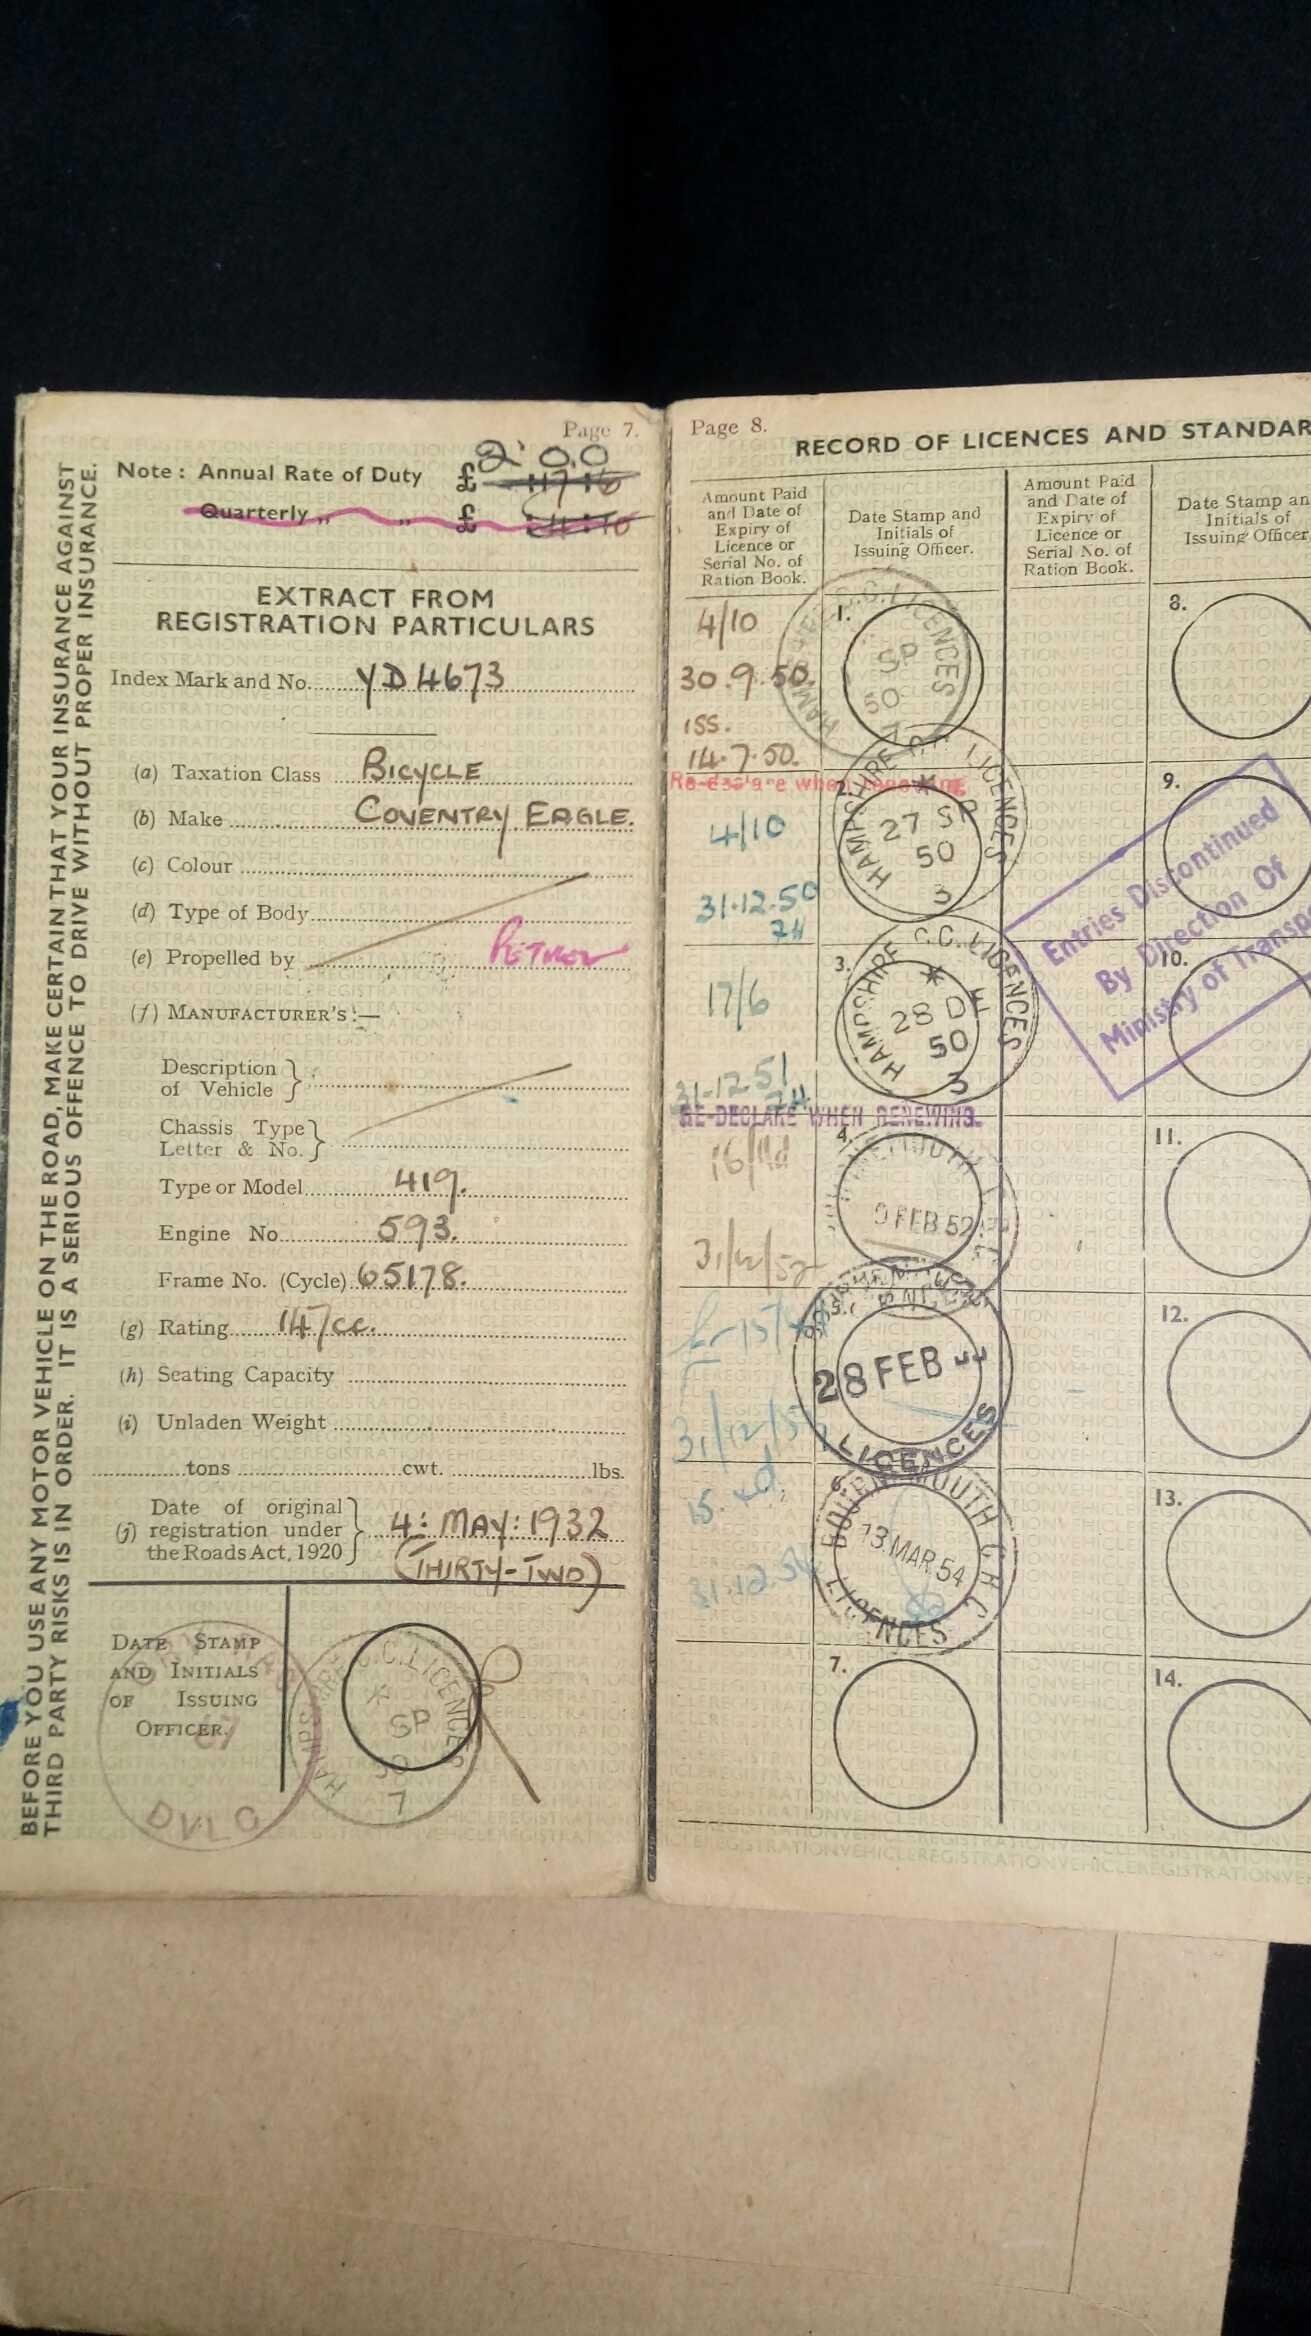 BEFORE YOU USE ANY MOTOR VEHICLE ON THE ROAD, MAKE CERTAIN THAT YOUR INSURANCE AGAINST
THIRD PARTY RISKS IS IN ORDER. IT IS A SERIOUS OFFENCE TO DRIVE WITHOUT PROPER INSURANCE.
Page 7.
2. 0.0
Note: Annual Rate of Duty £ :17:6
Quarterly „ „ £ :4:10
EXTRACT FROM
REGISTRATION PARTICULARS
Index Mark and No. YD 4673
(a) Taxation Class BICYCLE
(b) Make COVENTRY EAGLE.
(c) Colour
(d) Type of Body
(e) Propelled by PETROL
(f) MANUFACTURER'S:—
Description
of Vehicle
Chassis Type
Letter & No.
Type or Model 419.
Engine No 593.
Frame No. (Cycle) 65178.
(g) Rating 147cc.
(h) Seating Capacity
(i) Unladen Weight
tons cwt. lbs.
Date of original
(j) registration under 4: MAY: 1932
the Roads Act, 1920
(THIRTY-TWO)
DATE STAMP
AND INITIALS
OF ISSUING
OFFICER.
67
DVLO
HAMPSHIRE C.C. LICENCES
SP
50
7
Page 8.
RECORD OF LICENCES AND STANDAR
Amount Paid
and Date of
Expiry of
Licence or
Serial No. of
Ration Book.
Date Stamp and
Initials of
Issuing Officer.
Amount Paid
and Date of
Expiry of
Licence or
Serial No. of
Ration Book.
Date Stamp an
Initials of
Issuing Officer
4/10
30.9.50.
ISS.
14.7.50.
1.
HAMPSHIRE C.C. LICENCES
SP
50
7
Re-declare when renewing
4/10
31.12.50
2.
HAMPSHIRE C.C. LICENCES
27 SP
50
3
17/6
31-12 51
3.
HAMPSHIRE C.C. LICENCES
28 DE
50
3
RE-DECLARE WHEN RENEWING.
16/11d
31/12/52
4.
FEB 52
31/12/53
5.
28 FEB
LICENCES
31.12.54
6.
BOURNEMOUTH C.B.C.
13 MAR 54
LICENCES
7.
8.
9.
Entries Discontinued
By Direction Of
Ministry of Transp
10.
11.
12.
13.
14.